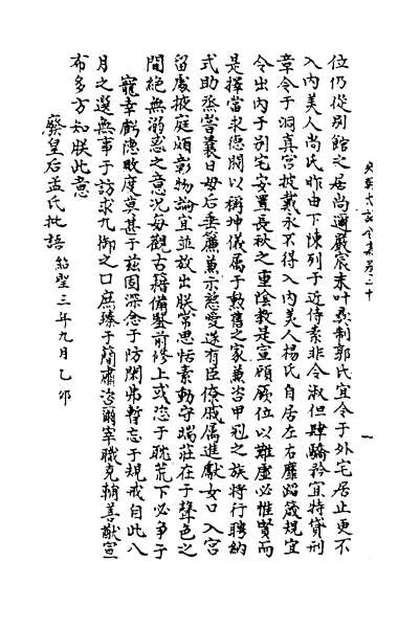 宋朝大詔令集卷二十
一
位仍從別館之居尚邇嚴宸未叶彝制郭氏宜令于外宅居止更不
入內美人尚氏昨由下陳列于近侍素非令淑但肆驕矜宜特貸刑
章令于洞真宮披戴永不得入內美人楊氏自居左右靡蹈箴規宜
令出內于別宅安置長秋之重陰教是宣顧厥位以難虛必惟賢而
是擇當求德閥以稱坤儀屬于勲舊之家兼咨甲冠之族將行聘納
式助烝嘗曩日母后垂簾薰示慈愛遂有臣僚戚屬進獻女口入宮
留處掖庭頗彰物論宜並放出朕常思恬素動守端莊在于聲色之
間絕無溺惑之意况每觀古籍備鑒前修上或恣于耽荒下必爭于
寵幸虧隱敗度莫甚于兹固深念于防閑弗暫忘于規戒自此八
月之選無事于訪求九御之口庶臻于簡肅咨爾宰職克輔善猷宣
布多方知朕此意
廢皇后孟氏批語 紹聖三年九月乙卯